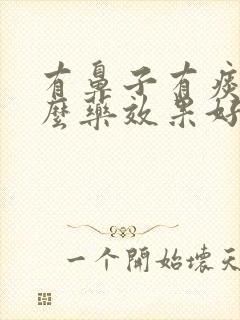 有鼻子有痰
麼藥效果好
一个開始壞天